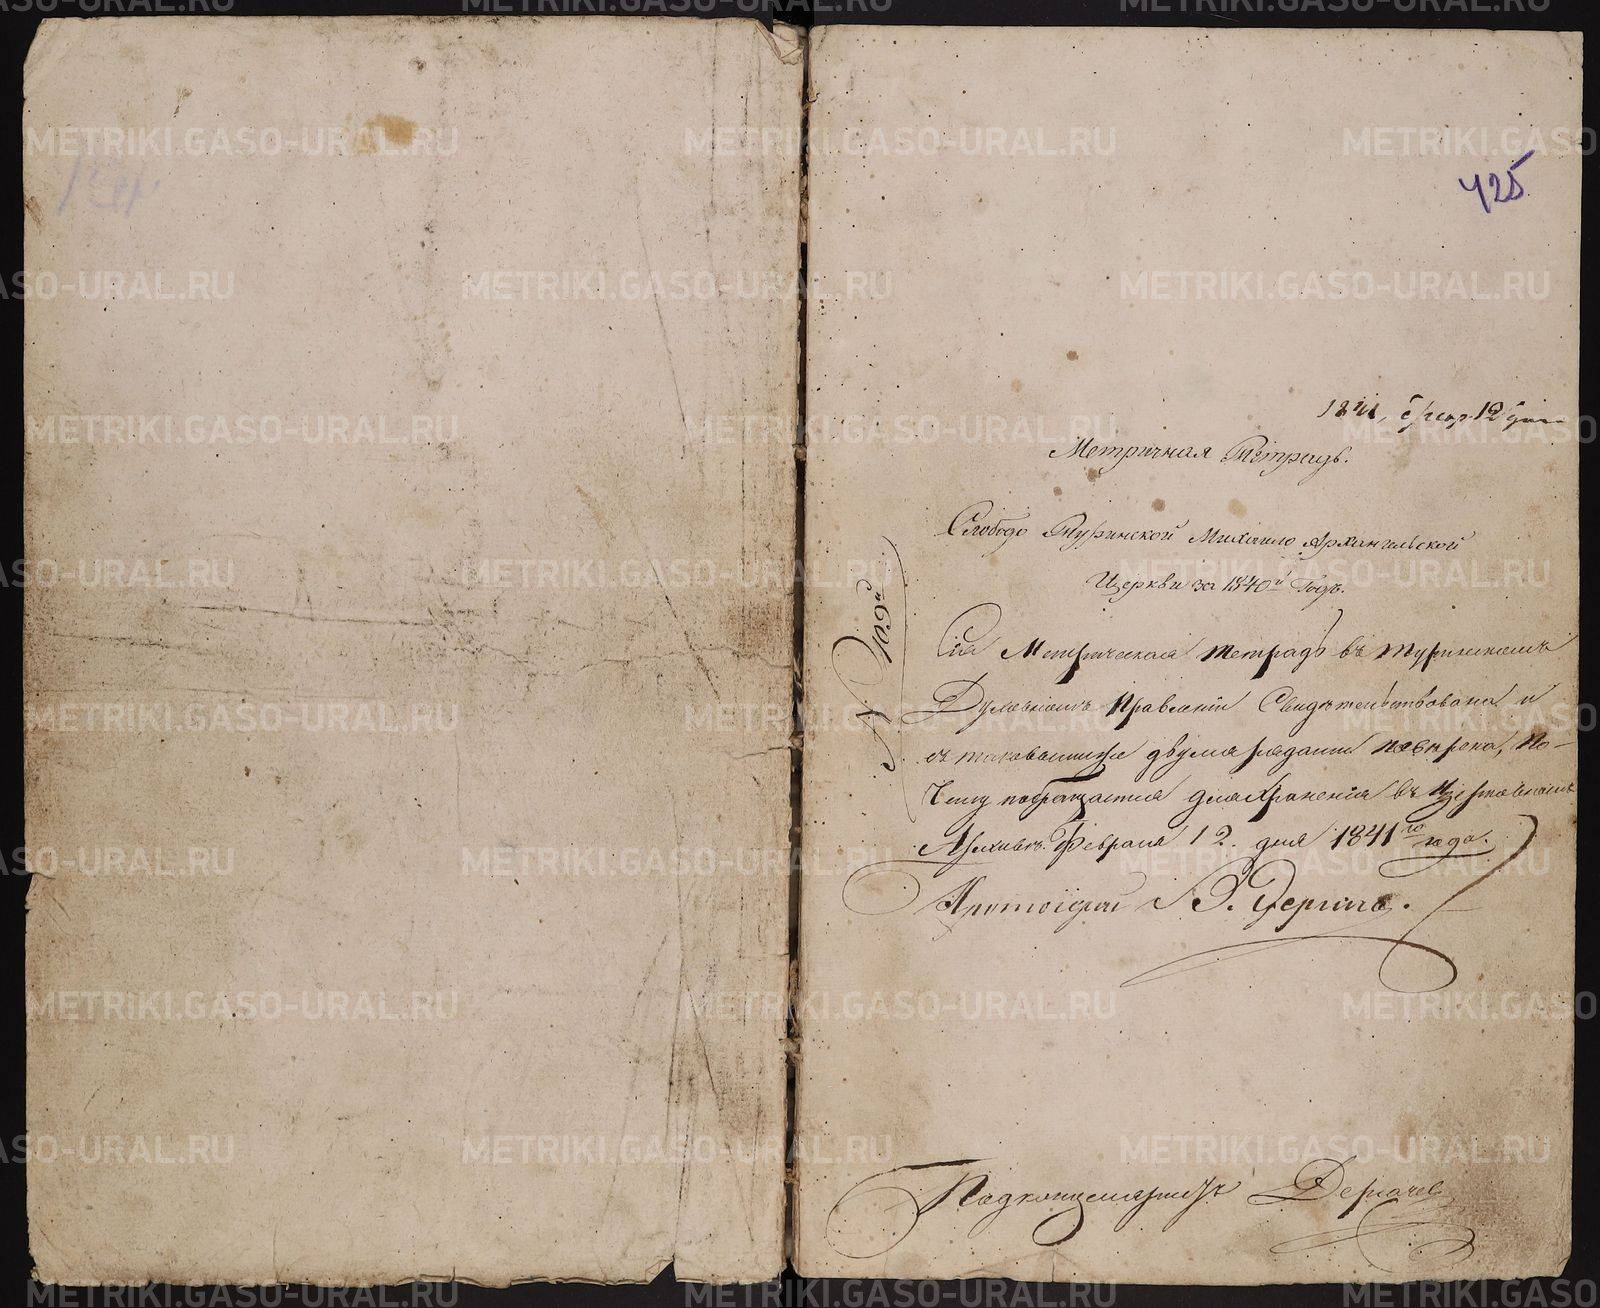 425
1841, февр. 12 дня
Метричная Тетрадь.
Слободо Туринской Михаило Архангельской
Церкви за 1840й Годъ.
Сія Метрическая тетрадь въ Туринскомъ
Духовномъ Правленіи Свидѣтельствована и
съ таковыми же двумя рядами повѣрена, по-
чему возвращается для храненія въ Церковномъ
Архивѣ. Февраля 12. дня 1841го года.
Протоіерей
Подканцеляристъ Дергачев
METRIKI.GASO-URAL.RU